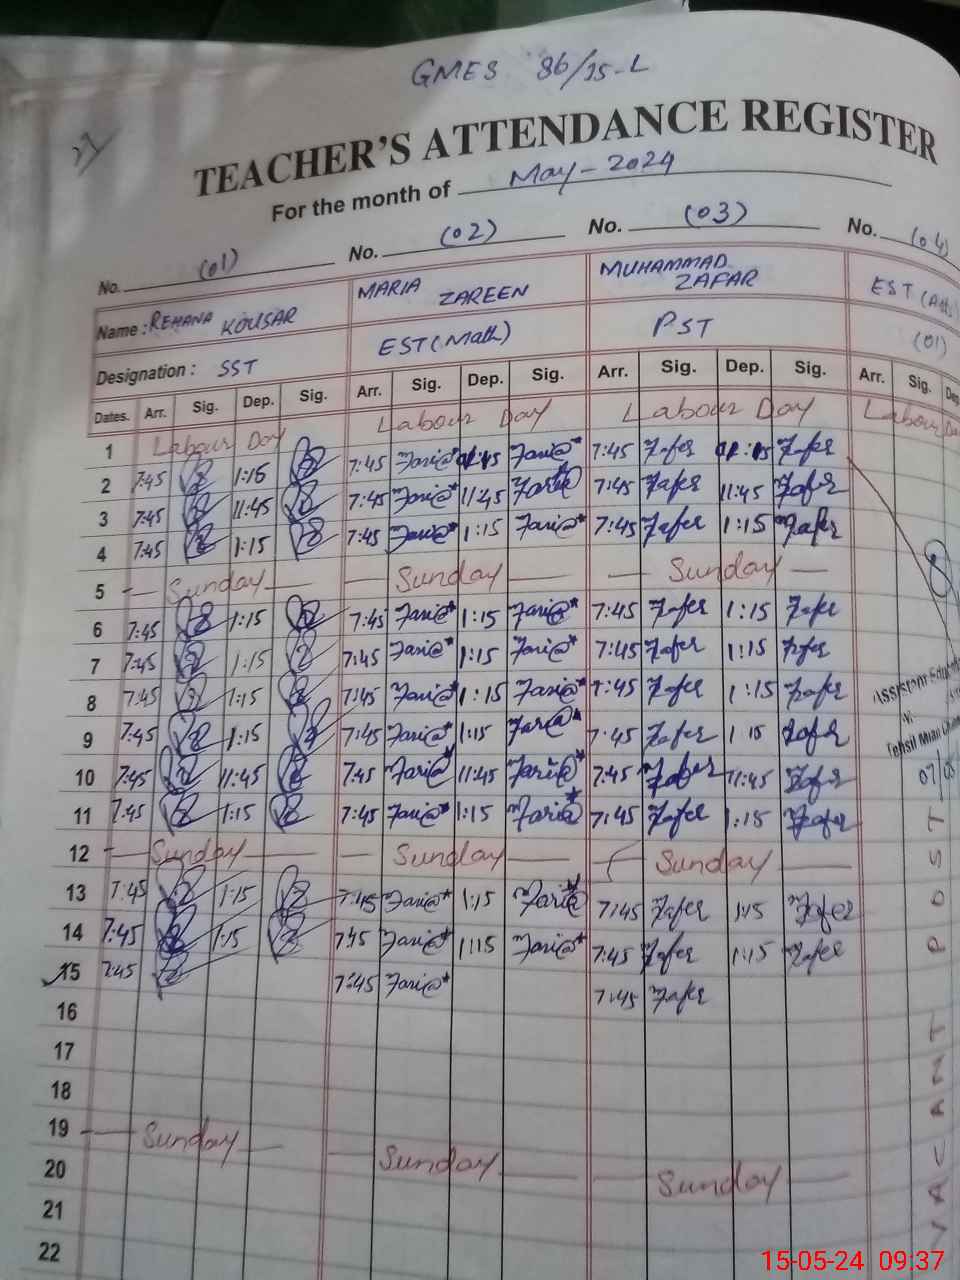 GMES 86/15-L
TEACHER'S ATTENDANCE REGISTER
For the month of May-2024
No. (01) No. (02) No. (03) No. (04)
Name : REHANA KOUSAR MARIA ZAREEN MUHAMMAD ZAFAR EST
Designation : SST EST (Math) PST (01)
Dates. Arr. Sig. Dep. Sig. Arr. Sig. Dep. Sig. Arr. Sig. Dep. Sig. Arr. Sig. Dep
1 Labour Day Labour Day Labour Day Labour
2 7:45 1:15 7:45 7:45 Zafer Zafer
3 7:45 11:45 7:45 11:45 7:45 Zafer 11:45 Zafer
4 7:45 1:15 7:45 1:15 7:45 Zafer 1:15 Zafer
5 Sunday Sunday Sunday
6 7:45 1:15 7:45 1:15 7:45 Zafer 1:15 Zafer
7 7:45 1:15 7:45 1:15 7:45 Zafer 1:15 Zafer
8 7:45 1:15 7:45 1:15 7:45 Zafer 1:15 Zafer
9 7:45 1:15 7:45 1:15 7:45 Zafer 1:15 Zafer
10 7:45 11:45 7:45 11:45 7:45 Zafer 11:45 Zafer
11 7:45 1:15 7:45 1:15 7:45 Zafer 1:15 Zafer
12 Sunday Sunday Sunday
13 7:45 1:15 7:45 1:15 7:45 Zafer 1:15 Zafer
14 7:45 1:15 7:45 1:15 7:45 Zafer 1:15 Zafer
15 7:45 7:45 7:45 Zafer
16
17
18
19 Sunday Sunday Sunday
20
21
22
Assistant
Tehsil Mian
VACANT POST
15-05-24 09:37